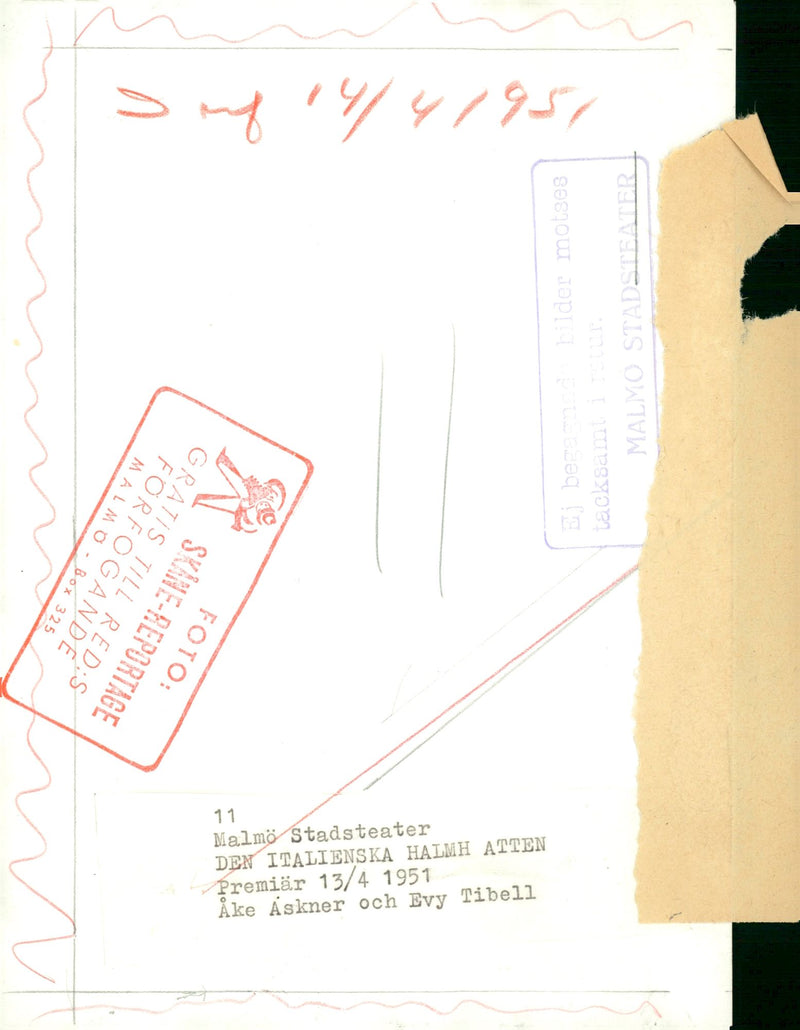 14/4 1951
Ej begagnade bilder motses
tacksamt i retur.
MALMÖ STADSTEATER
FOTO:
SKÅNE-REPORTAGE
GRATIS TILL RED:S
FÖRFOGANDE
MALMÖ - BOX 325
11
Malmö Stadsteater
DEN ITALIENSKA HALMH ATTEN
Premiär 13/4 1951
Åke Askner och Evy Tibell